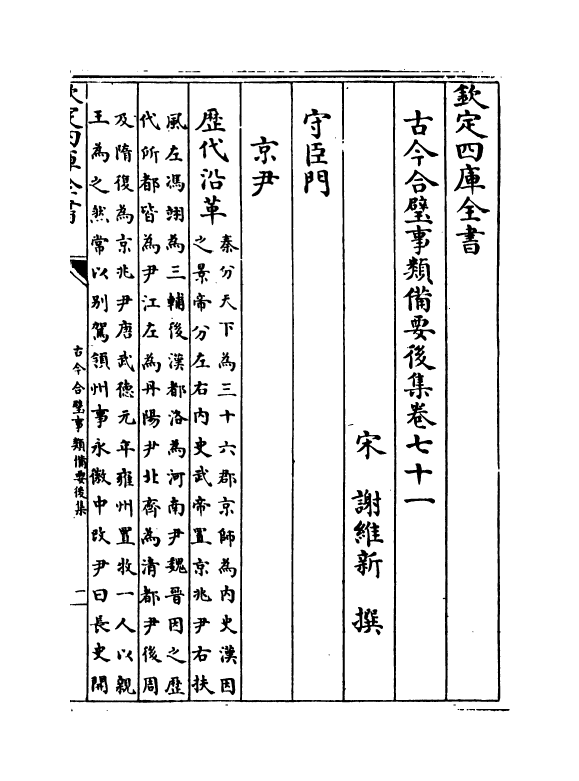 欽定四庫全書
古今合璧事類備要後集卷七十一
宋 謝維新 撰
守臣門
京尹
歷代沿革
秦分天下為三十六郡京師為内史漢因
之景帝分左右内史武帝置京兆尹右扶
風左馮翊為三輔後漢都洛為河南尹魏晉因之歴
代所都皆為尹江左為丹陽尹北齊為清都尹後周
及隋復為京兆尹唐武徳元年雍州置牧一人以親
王為之然常以别駕領州事永徽中改尹曰長史開
欽定四庫全書
古今合璧事類備要後集